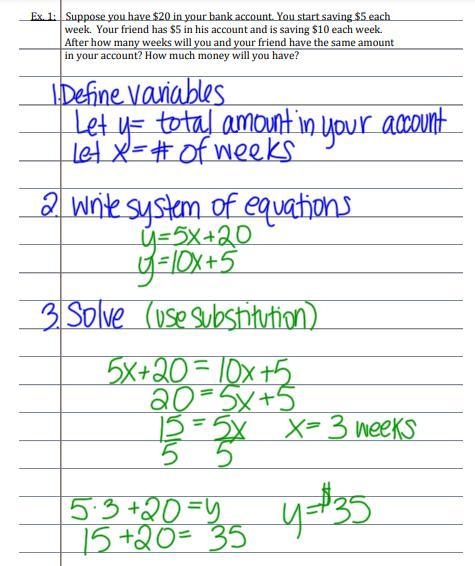 Ex. 1: Suppose you have $20 in your bank account. You start saving $5 each
week. Your friend has $5 in his account and is saving $10 each week.
After how many weeks will you and your friend have the same amount
in your account? How much money will you have?
1. Define variables
Let y = total amount in your account
Let x = # of weeks
2. Write system of equations
y=5x+20
y=10x+5
3. Solve (use substitution)
5x+20 = 10x+5
20 = 5x+5
15 = 5x x= 3 weeks
5 5
5·3+20=y y=$35
15+20= 35